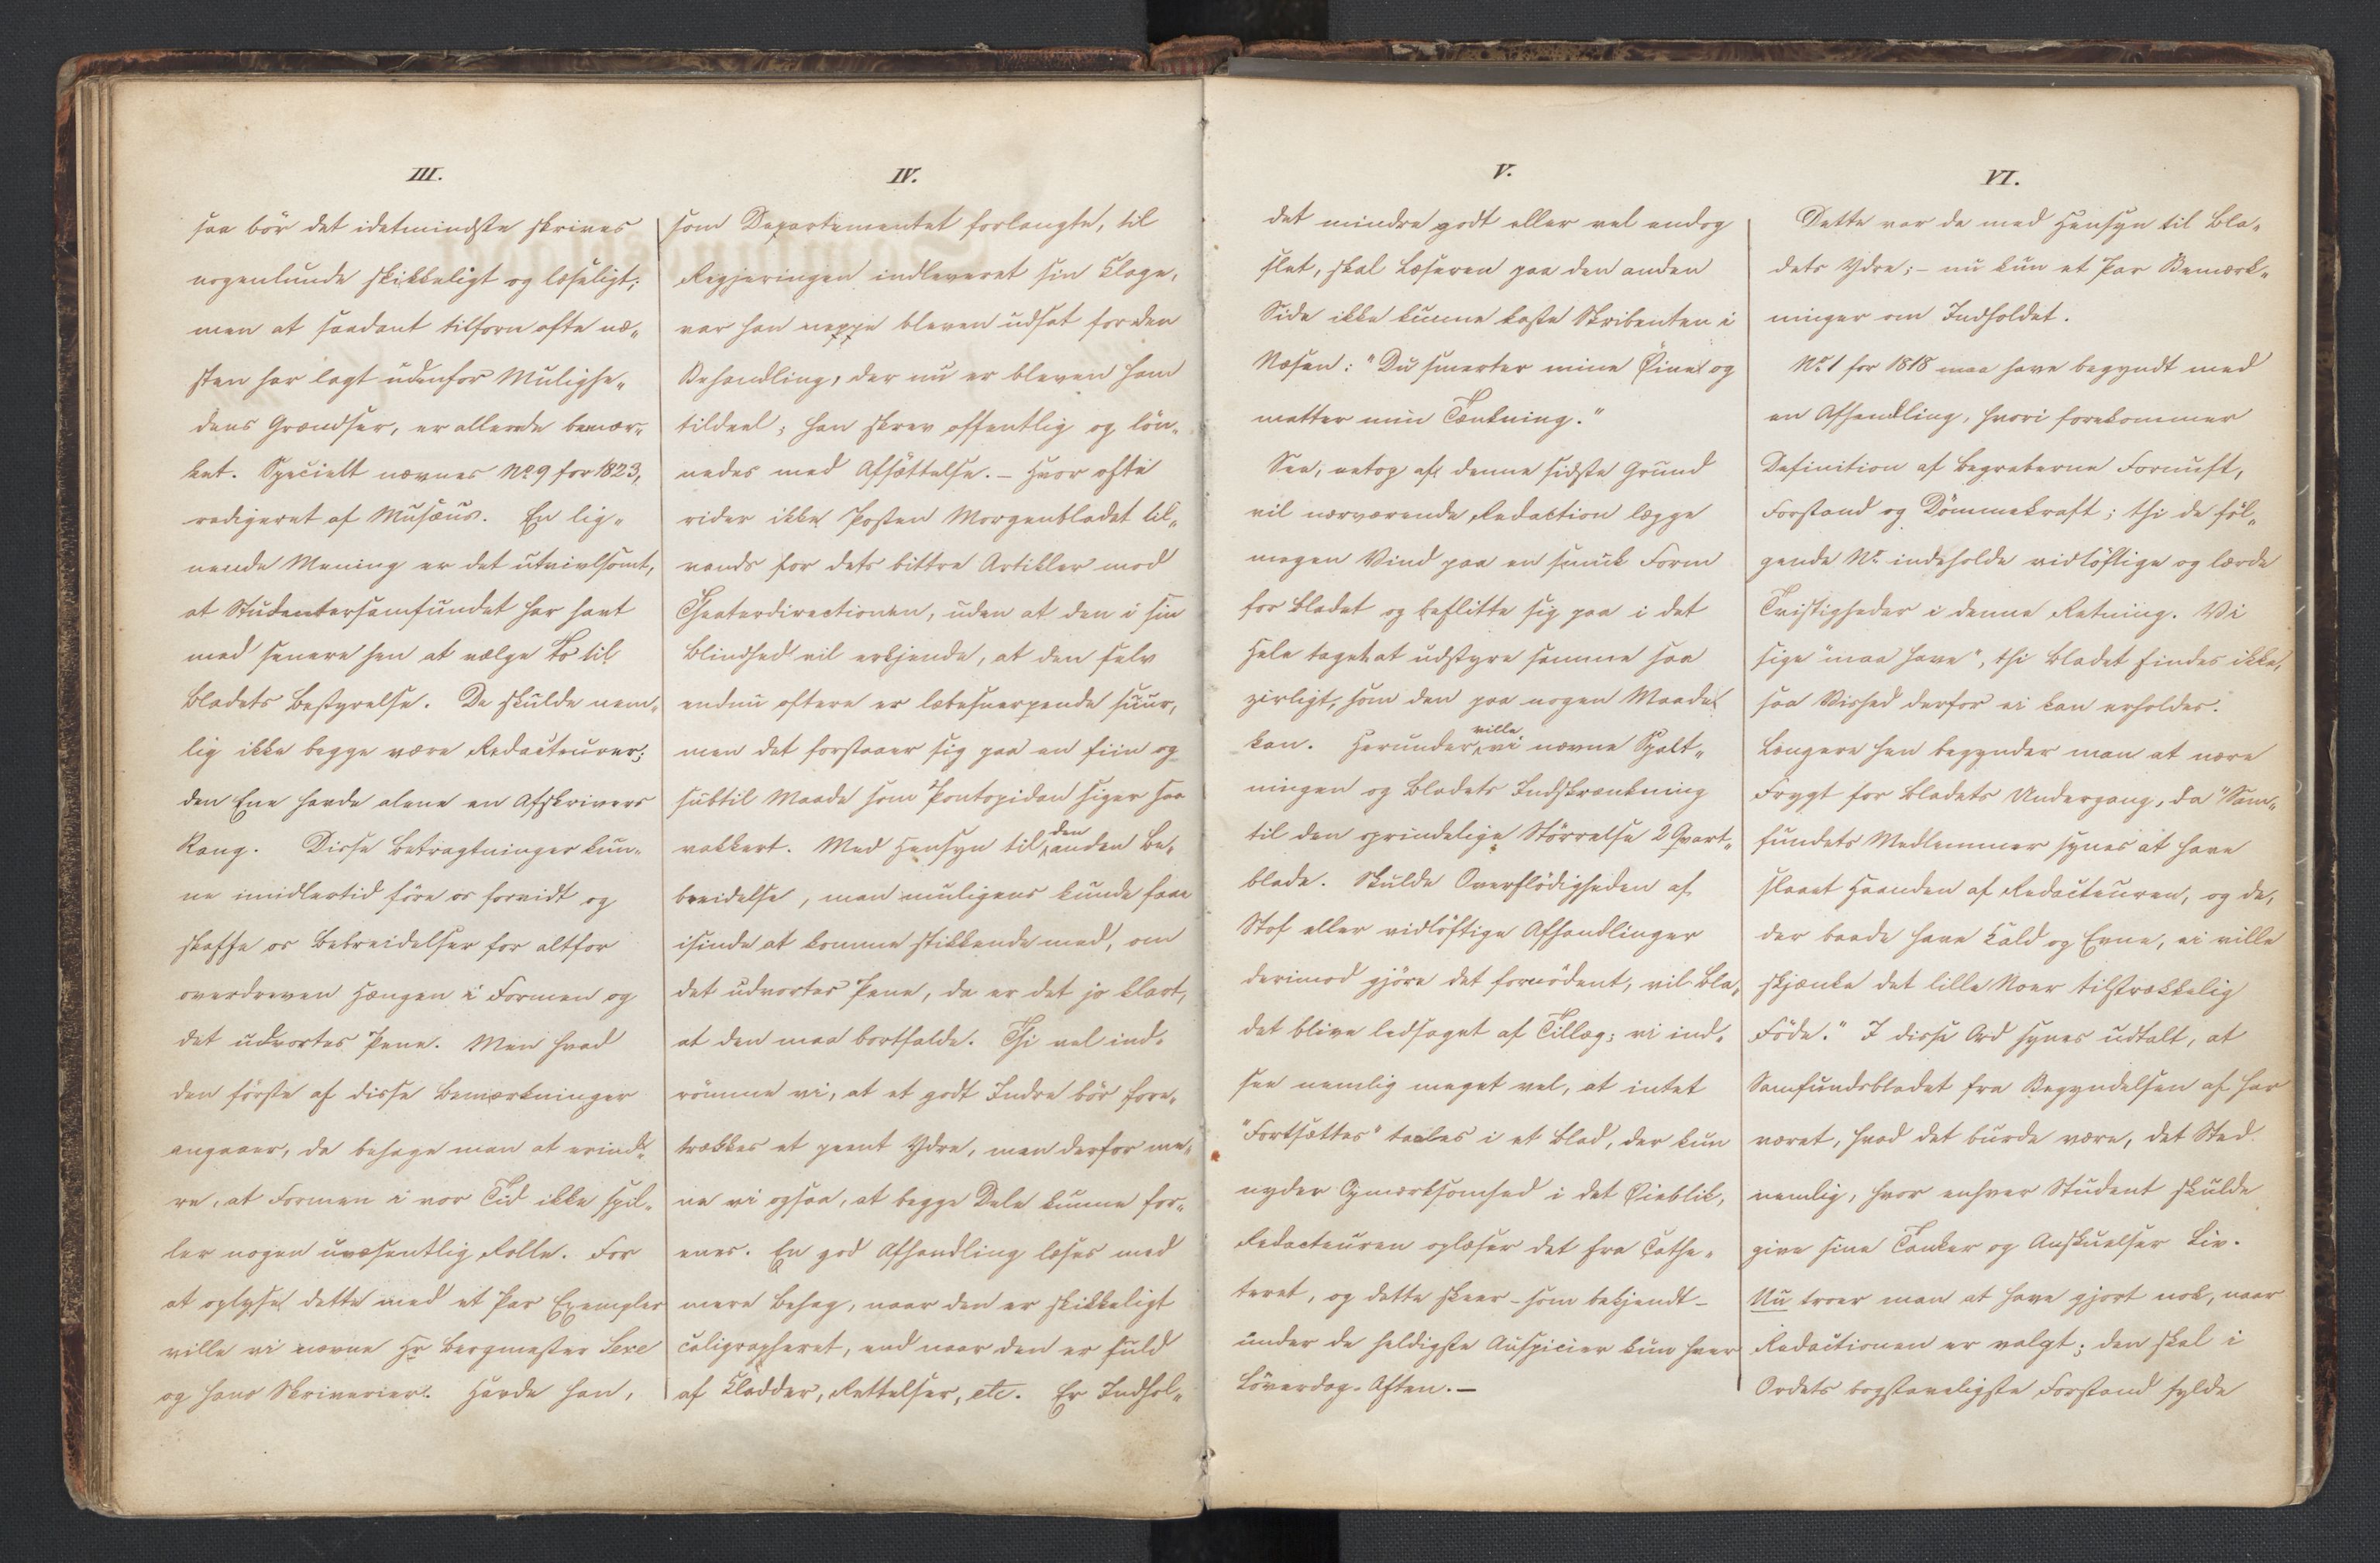 III.
saa bör det idetmindste skrives
nogenlunde skikkeligt og læseligt;
men at saadant tilforn ofte næ„
sten har lagt udenfor Mulighe„
dens Grændser, er allerede bemær„
ket. Specielt nævnes No 9 for 1823,
redigeret af Musæus. En lig„
nende Mening er det utvivlsomt,
at Studentersamfundet har havt
med senere hen at vælge To til
Bladets Bestyrelse. De skulde nem„
lig ikke begge være Redacteurer;
den Ene havde alene en Afskrivers
Rang. Disse Betragtninger kun„
ne imidlertid före os forvidt og
skaffe os Bebreidelser for altfor
overdreven Hængen i Formen og
det udvortes Pene. Men hvad
den förste af disse Bemærkninger
angaaer, da behage man at erind„
re, at Formen i vor Tid ikke spil„
ler nogen uvæsentlig Rolle. For
at oplyse dette med et Par Exempler
ville vi nævne Hr Bergmester Sexe
og hans Skriverier. Havde han,
IV.
som Departementet forlangte, til
Regjeringen indleveret sin Klage,
var han neppe bleven udsat for den
Behandling, der nu er bleven ham
tildeel; han skrev offentlig og lön„
nedes med Afsættelse. – Hvor ofte
rider ikke Posten Morgenbladet til„
vands for dets bittre Artikler mod
Theaterdirectionen, uden at den i sin
Blindhed vil erkjende, at den selv
endnu oftere er læbesnerpende suur,
men det forstaaer sig paa en fiin og
subtil Maade som Pontopidan siger saa
vakkert. Med Hensyn til den anden Be„
breidelse, man muligens kunde faae
isinde at komme stikkende med, om
det udvortes Pene, da er det jo klart,
at den maa bortfalde. Thi vel ind„
römme vi, at et godt Indre bör fore„
trækkes et peent Ydre, men derfor me„
ne vi ogsaa, at begge Dele kunne for„
enes. En god Afhandling læses med
mere Behag, naar den er skikkeligt
caligrapheret, end naar den er fuld
af Kladder, Rettelser, etc. Er Indhol„
V.
det mindre godt eller vel endog
slet, skal Læseren paa den anden
Side ikke kunne kaste Skribenten i
Næsen: "Du smerter mine Öine og
matter min Tænkning."
See, netop af denne sidste Grund
vil nærværende Redaktion lægge
megen Vind paa en smuk Form
for Bladet og beflitte sig paa i det
Hele taget at udstyre samme saa
zirligt, som den paa nogen Maade
kan. Herunder ville vi nævne Spalt„
ningen og Bladets Indskrænkning
til den oprindelige Störrelse 2 Qvart„
blade. Skulde Overflödigheden af
Stof eller vidlöftige Afhandlinger
derimod gjöre det fornödent, vil Bla„
det blive ledsaget af Tillæg; vi ind„
see nemlig meget vel, at intet
"Fortsættes" taales i et Blad, der kun
nyder Opmærksomhed i det Öieblik,
Redacteuren oplæser det fra Cathe„
teret, og dette skeer – som bekjendt –
under de heldigste Auspicier kun hver
Löverdag-Aften. –
VI.
Dette var da med Hensyn til Bla„
dets Ydre; – nu kun et Par Bemærk„
ninger om Indholdet.
No 1 for 1818 maa have begyndt med
en Afhandling, hvori forekommer
Definition af Begreberne Fornuft,
Forstand og Dömmekraft; thi de föl„
gende Nr indeholde vidlöftige og lærde
Tvistigheder i denne Retning. Vi
sige "maa have", thi Bladet findes ikke,
saa Vished derfor ei kan erholdes.
Længere hen begynder man at nære
Frygt for Bladets Undergang, da "Sam„
fundets Medlemmer synes at have
slaaet Haanden af Redacteuren, og de,
der baade have Kald og Evne, ei ville
skjænke det lille Noer tilstrækkelig
Föde." I disse Ord synes udtalt, at
Samfundsbladet fra Begyndelsen af har
været, hvad det burde være, det Sted
nemlig, hvor enhver Student skulde
give sine Tanker og Anskuelser Liv.
Nu troer man at have gjort nok, naar
Redactionen er valgt; den skal i
Ordets bogstaveligste Forstand fylde